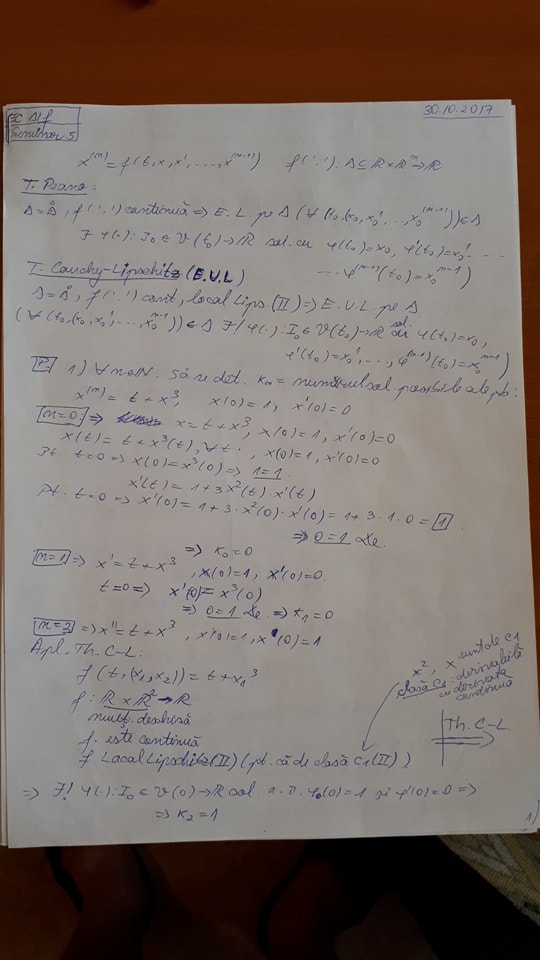 30.10.2017
EC Dif
Seminar 5
x^(m) = f(t, x, x', ..., x^(m-1))   f(·,·): Δ ⊆ ℝ×ℝ^m → ℝ
T. Peano:
Δ = Δ̊, f(·,·) continuă => E.L. pe Δ (∀ (t₀,(x₀,x₀', ..., x₀^(m-1))) ∈ Δ
∃ φ(·): I₀ ∈ V(t₀) → ℝ sol. cu φ(t₀) = x₀, φ'(t₀) = x₀' ...
... φ^(m-1)(t₀) = x₀^(m-1))
T. Cauchy-Lipschitz (E.U.L)
Δ = Δ̊, f(·,·) cont, local Lips (II) => E.U.L pe Δ
(∀ (t₀,(x₀,x₀', ..., x₀^(m-1))) ∈ Δ ∃! φ(·): I₀ ∈ V(t₀) → ℝ sol cu φ(t₀) = x₀,
φ'(t₀) = x₀', ..., φ^(m-1)(t₀) = x₀^(m-1))
P: 1) ∀ n∈ℕ. Să se det. K_m = numărul sol posibile ale pb:
x^(m) = t + x³, x(0) = 1, x'(0) = 0
n=0: => x = t + x³, x(0) = 1, x'(0) = 0
x(t) = t + x³(t), ∀t, x(0) = 1, x'(0) = 0
Pt t=0 => x(0) = x³(0) => 1 = 1
x'(t) = 1 + 3x²(t)·x'(t)
Pt. t=0 => x'(0) = 1 + 3·x²(0)·x'(0) = 1 + 3·1·0 = 1
=> 0 = 1
=> K₀ = 0
n=1 => x' = t + x³, x(0) = 1, x'(0) = 0
t=0 => x'(0) = x³(0)
=> 0 = 1 => K₁ = 0
n=2 => x'' = t + x³, x(0) = 1, x'(0) = 1
Apl. Th. C-L:
f(t, (x₁, x₂)) = t + x₁³
f: ℝ × ℝ² → ℝ
mulț. deschisă
f. este continuă
f Local Lipschitz (II) (pt. că de clasă C1 (II))
x², x sunt de C1
clasă C1: derivabilă
cu derivata
continuă
Th. C-L.
=> ∃! φ(·): I₀ ∈ V(0) → ℝ sol. a.î. φ₀(0) = 1 și φ'(0) = 0 =>
=> K₂ = 1
1)